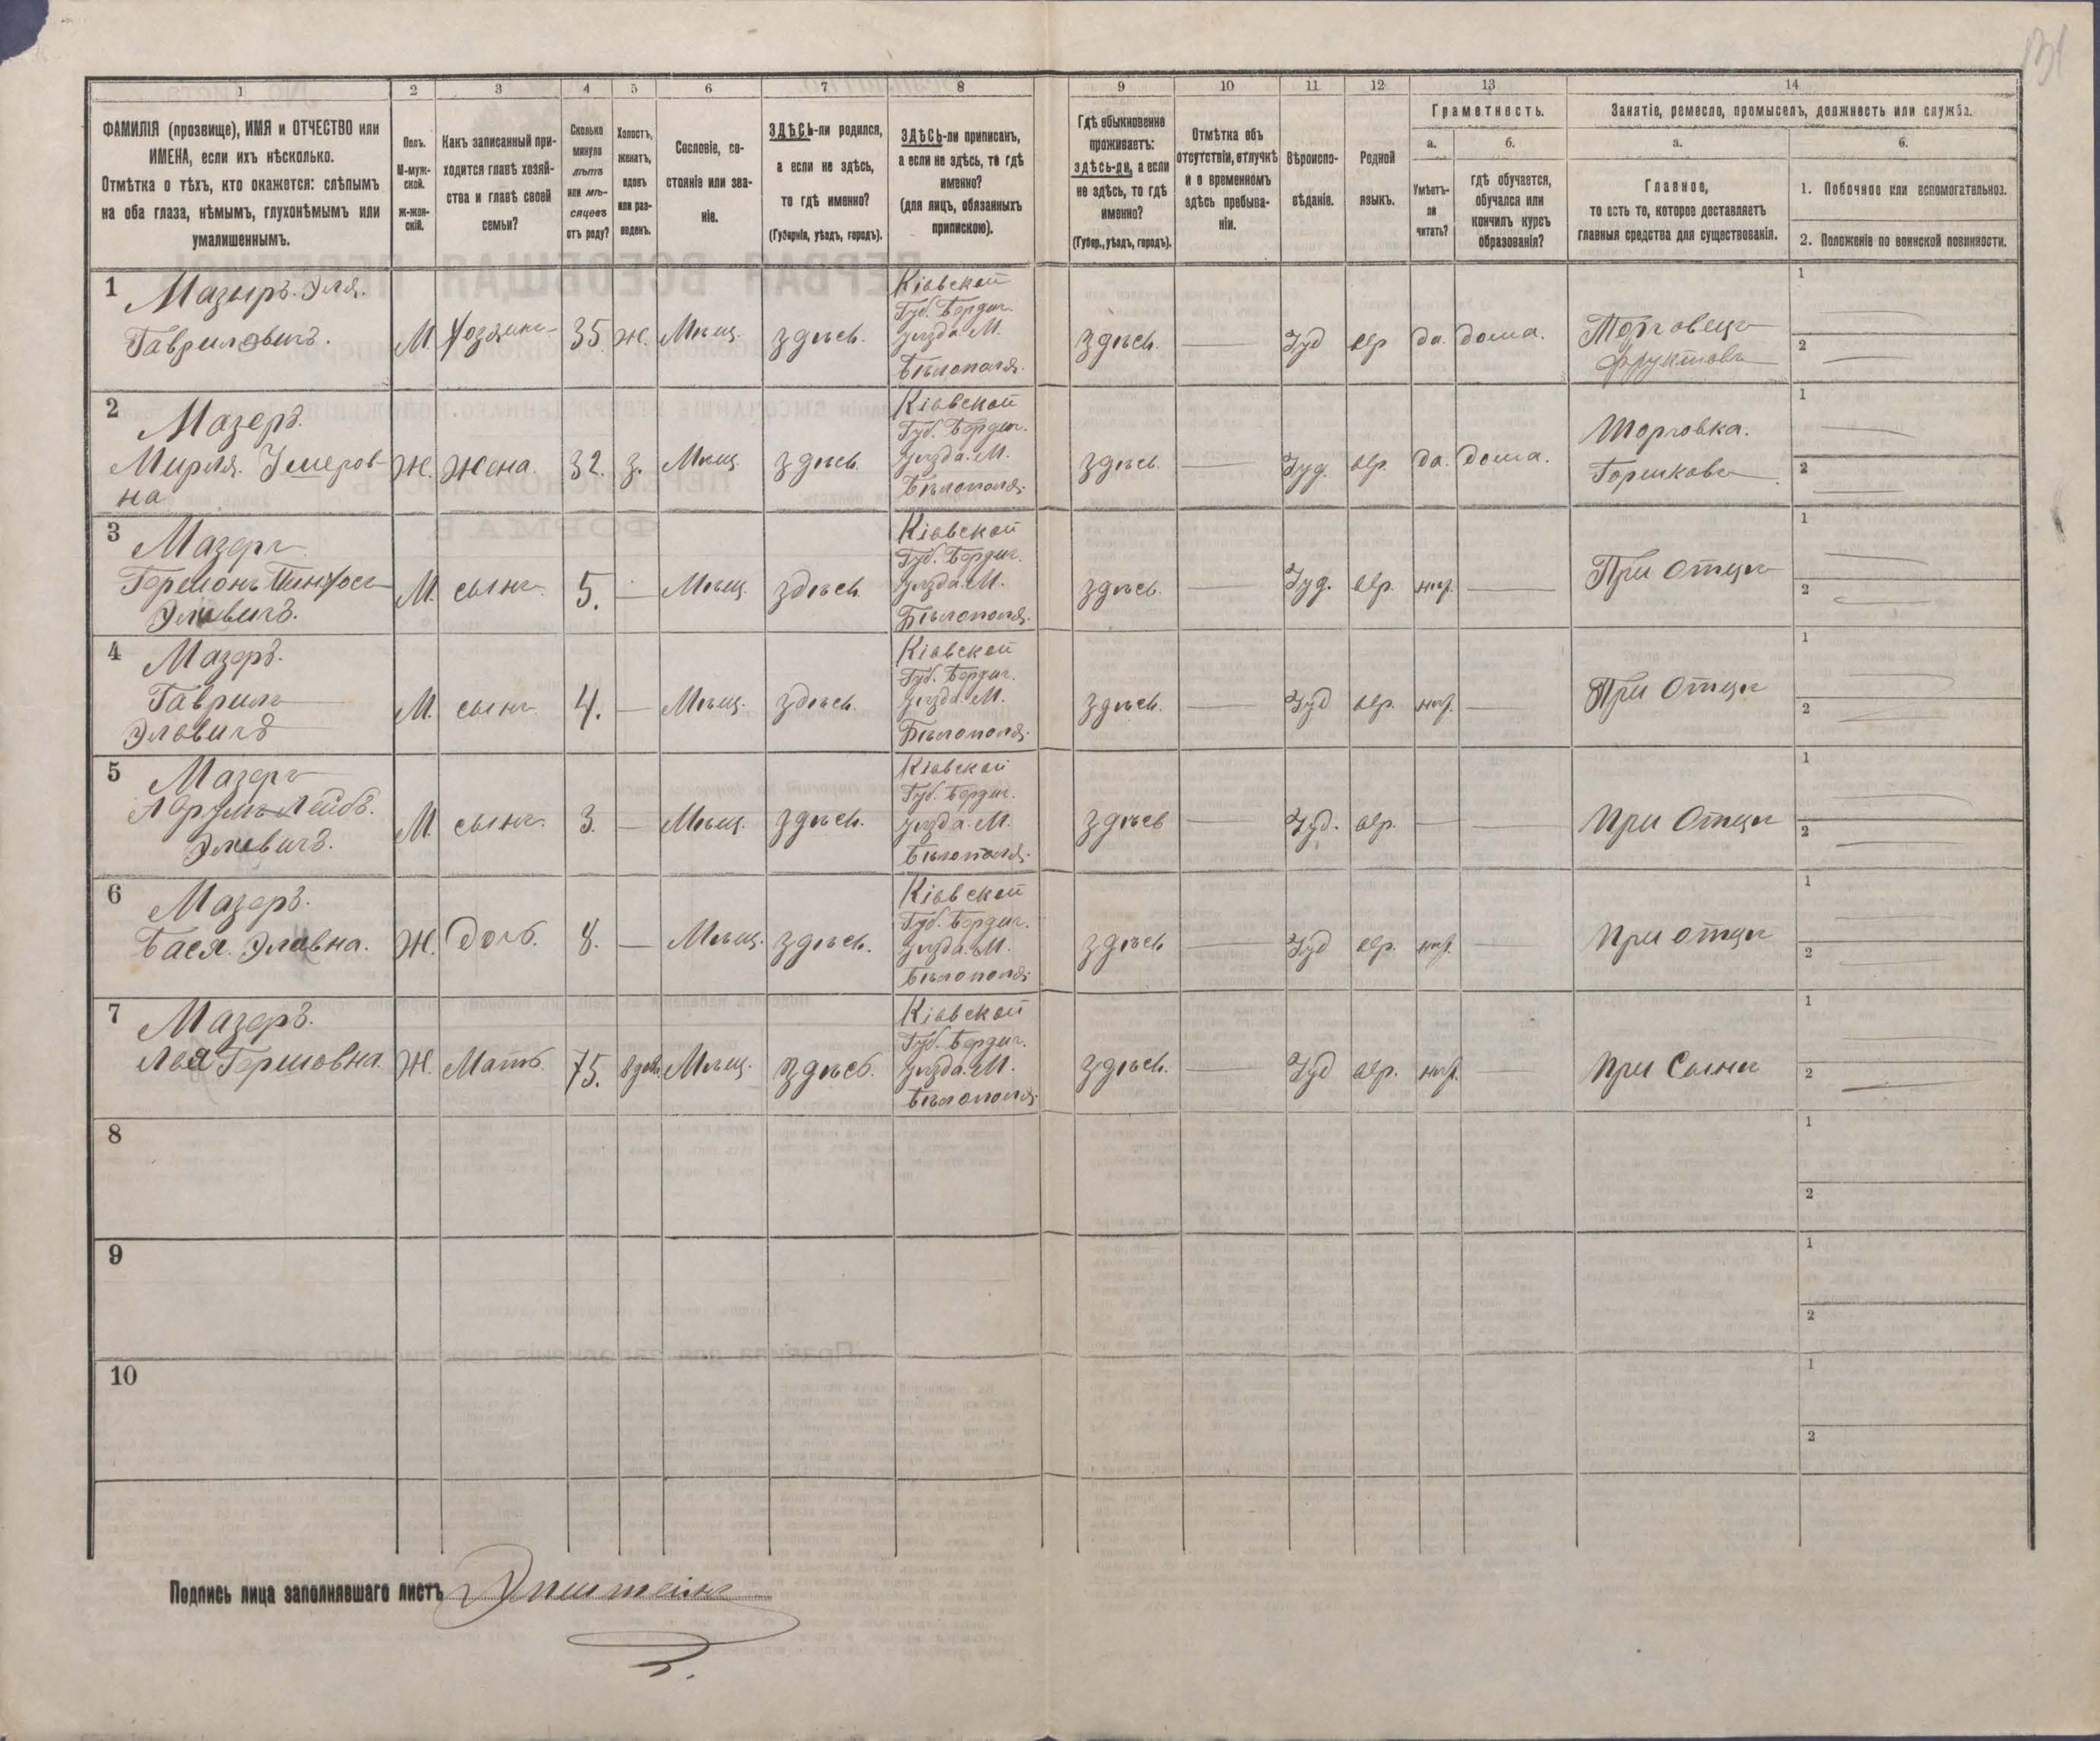 131
1
2
3
4
5
6
7
8
9
10
11
12
13
14
ФАМИЛІЯ (прозвище), ИМЯ и ОТЧЕСТВО или
ИМЕНА, если ихъ нѣсколько.
Отмѣтка о тѣхъ, кто окажется: слѣпымъ
на оба глаза, нѣмымъ, глухонѣмымъ или
умалишеннымъ.
Полъ.
М-муж-
ской.
Ж-жен-
скій.
Какъ записанный при-
ходится главѣ хозяй-
ства и главѣ своей
семьи?
Сколько
минуло
лѣтъ
или мѣ-
сяцевъ
отъ роду?
Холостъ,
женатъ,
вдовъ
или раз-
веденъ.
Сословіе, со-
стояніе или зва-
ніе.
ЗДѢСЬ-ли родился,
а если не здѣсь,
то гдѣ именно?
(Губернія, уѣздъ, городъ).
ЗДѢСЬ-ли приписанъ,
а если не здѣсь, то гдѣ
именно?
(для лицъ, обязанныхъ
припискою).
Гдѣ обыкновенно
проживаетъ:
здѣсь-ли, а если
не здѣсь, то гдѣ
именно?
(Губер., уѣздъ, городъ).
Отмѣтка объ
отсутствіи, отлучкѣ
и о временномъ
здѣсь пребыва-
ніи.
Вѣроиспо-
вѣданіе.
Родной
языкъ.
Грамотность.
а.
Умѣетъ-
ли
читать?
б.
гдѣ обучается,
обучался или
кончилъ курсъ
образованія?
Занятіе, ремесло, промыселъ, должность или служба.
а.
Главное,
то есть то, которое доставляетъ
главныя средства для существованія.
б.
1. Побочное или вспомогательное.
2. Положеніе по воинской повинности.
1
Мазыръ. Эля.
Гавриловичъ.
М. Хозяинъ 35 ж. Мѣщ. здѣсь.
Кіевской
Губ. Бердич.
уѣзда. М.
Бѣлополя.
здѣсь. — Іуд евр да. дома.
Торговецъ
фруктовъ
1
2
2
Мазеръ.
Мирля. Умеров-
на
Ж. жена. 32. з. Мѣщ. здѣсь
Кіевской
Губ. Бердич.
уѣзда. М.
Бѣлополя.
здѣсь. — Іуд. евр. да. дома.
Торговка.
Горшковъ
1
2
3
Мазеръ
Гершонъ Пинхосъ
Элевичъ.
М. сынъ. 5. — Мѣщ. здѣсь
Кіевской
Губ. Бердич.
уѣзда. М.
Бѣлополя.
здѣсь. — Іуд. евр. нѣт. —
При Отцѣ
1
2
4
Мазеръ.
Гаврилъ
Элевичъ
М. сынъ. 4. — Мѣщ. здѣсь.
Кіевской
Губ. Бердич.
уѣзда. М.
Бѣлополя.
здѣсь. — Іуд евр. нѣт. —
При Отцѣ
1
2
5
Мазеръ
Лейбъ.
Элевичъ.
М. сынъ. 3. — Мѣщ. здѣсь.
Кіевской
Губ. Бердич.
уѣзда. М.
Бѣлополя.
здѣсь — Іуд. евр. — —
При Отцѣ
1
2
6
Мазеръ.
Бася. Элевна.
Ж. Дочь. 8. — Мѣщ. здѣсь.
Кіевской
Губ. Бердич.
уѣзда. М.
Бѣлополя.
здѣсь — Іуд евр. нѣт. —
При отцѣ
1
2
7
Мазеръ.
Лея Гершовна.
Ж. Мать. 75. вдов. Мѣщ. здѣсь.
Кіевской
Губ. Бердич.
уѣзда. М.
Бѣлополя.
здѣсь. — Іуд евр. нѣт. —
При Сынѣ
1
2
8
1
2
9
1
2
10
1
2
Подпись лица заполнявшаго листъ